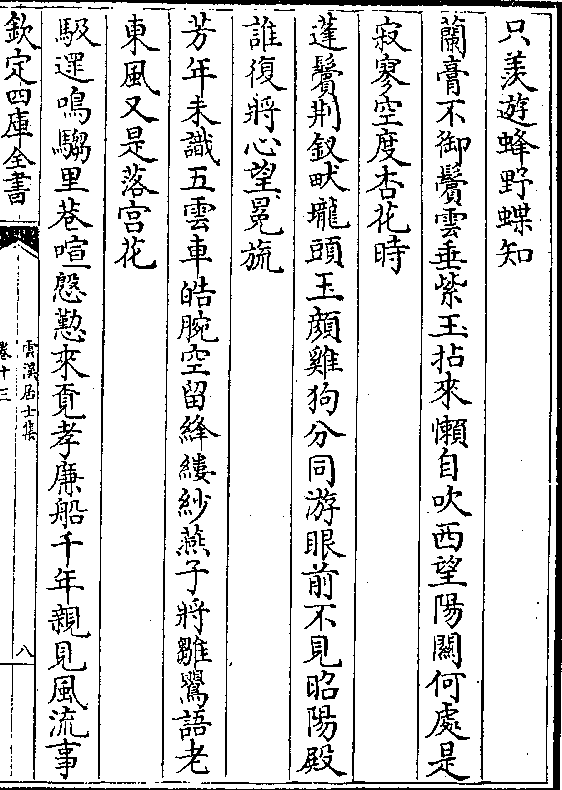 只羨遊蜂野蝶知
蘭膏不御鬢雲垂紫玉拈來懶自吹西望陽關何處是
寂寥空度杏花時
蓬鬢荆釵畎壠頭玉顔雞狗分同游眼前不見昭陽殿
誰復將心望冕旒
芳年未識五雲車皓腕空留絳縷紗燕子將雛鶯語老
東風又是落宫花
馺遝鳴騶里巷喧慇懃來覔孝廉船千年親見風流事
欽定四庫全書
雲溪居士集
卷十三
八